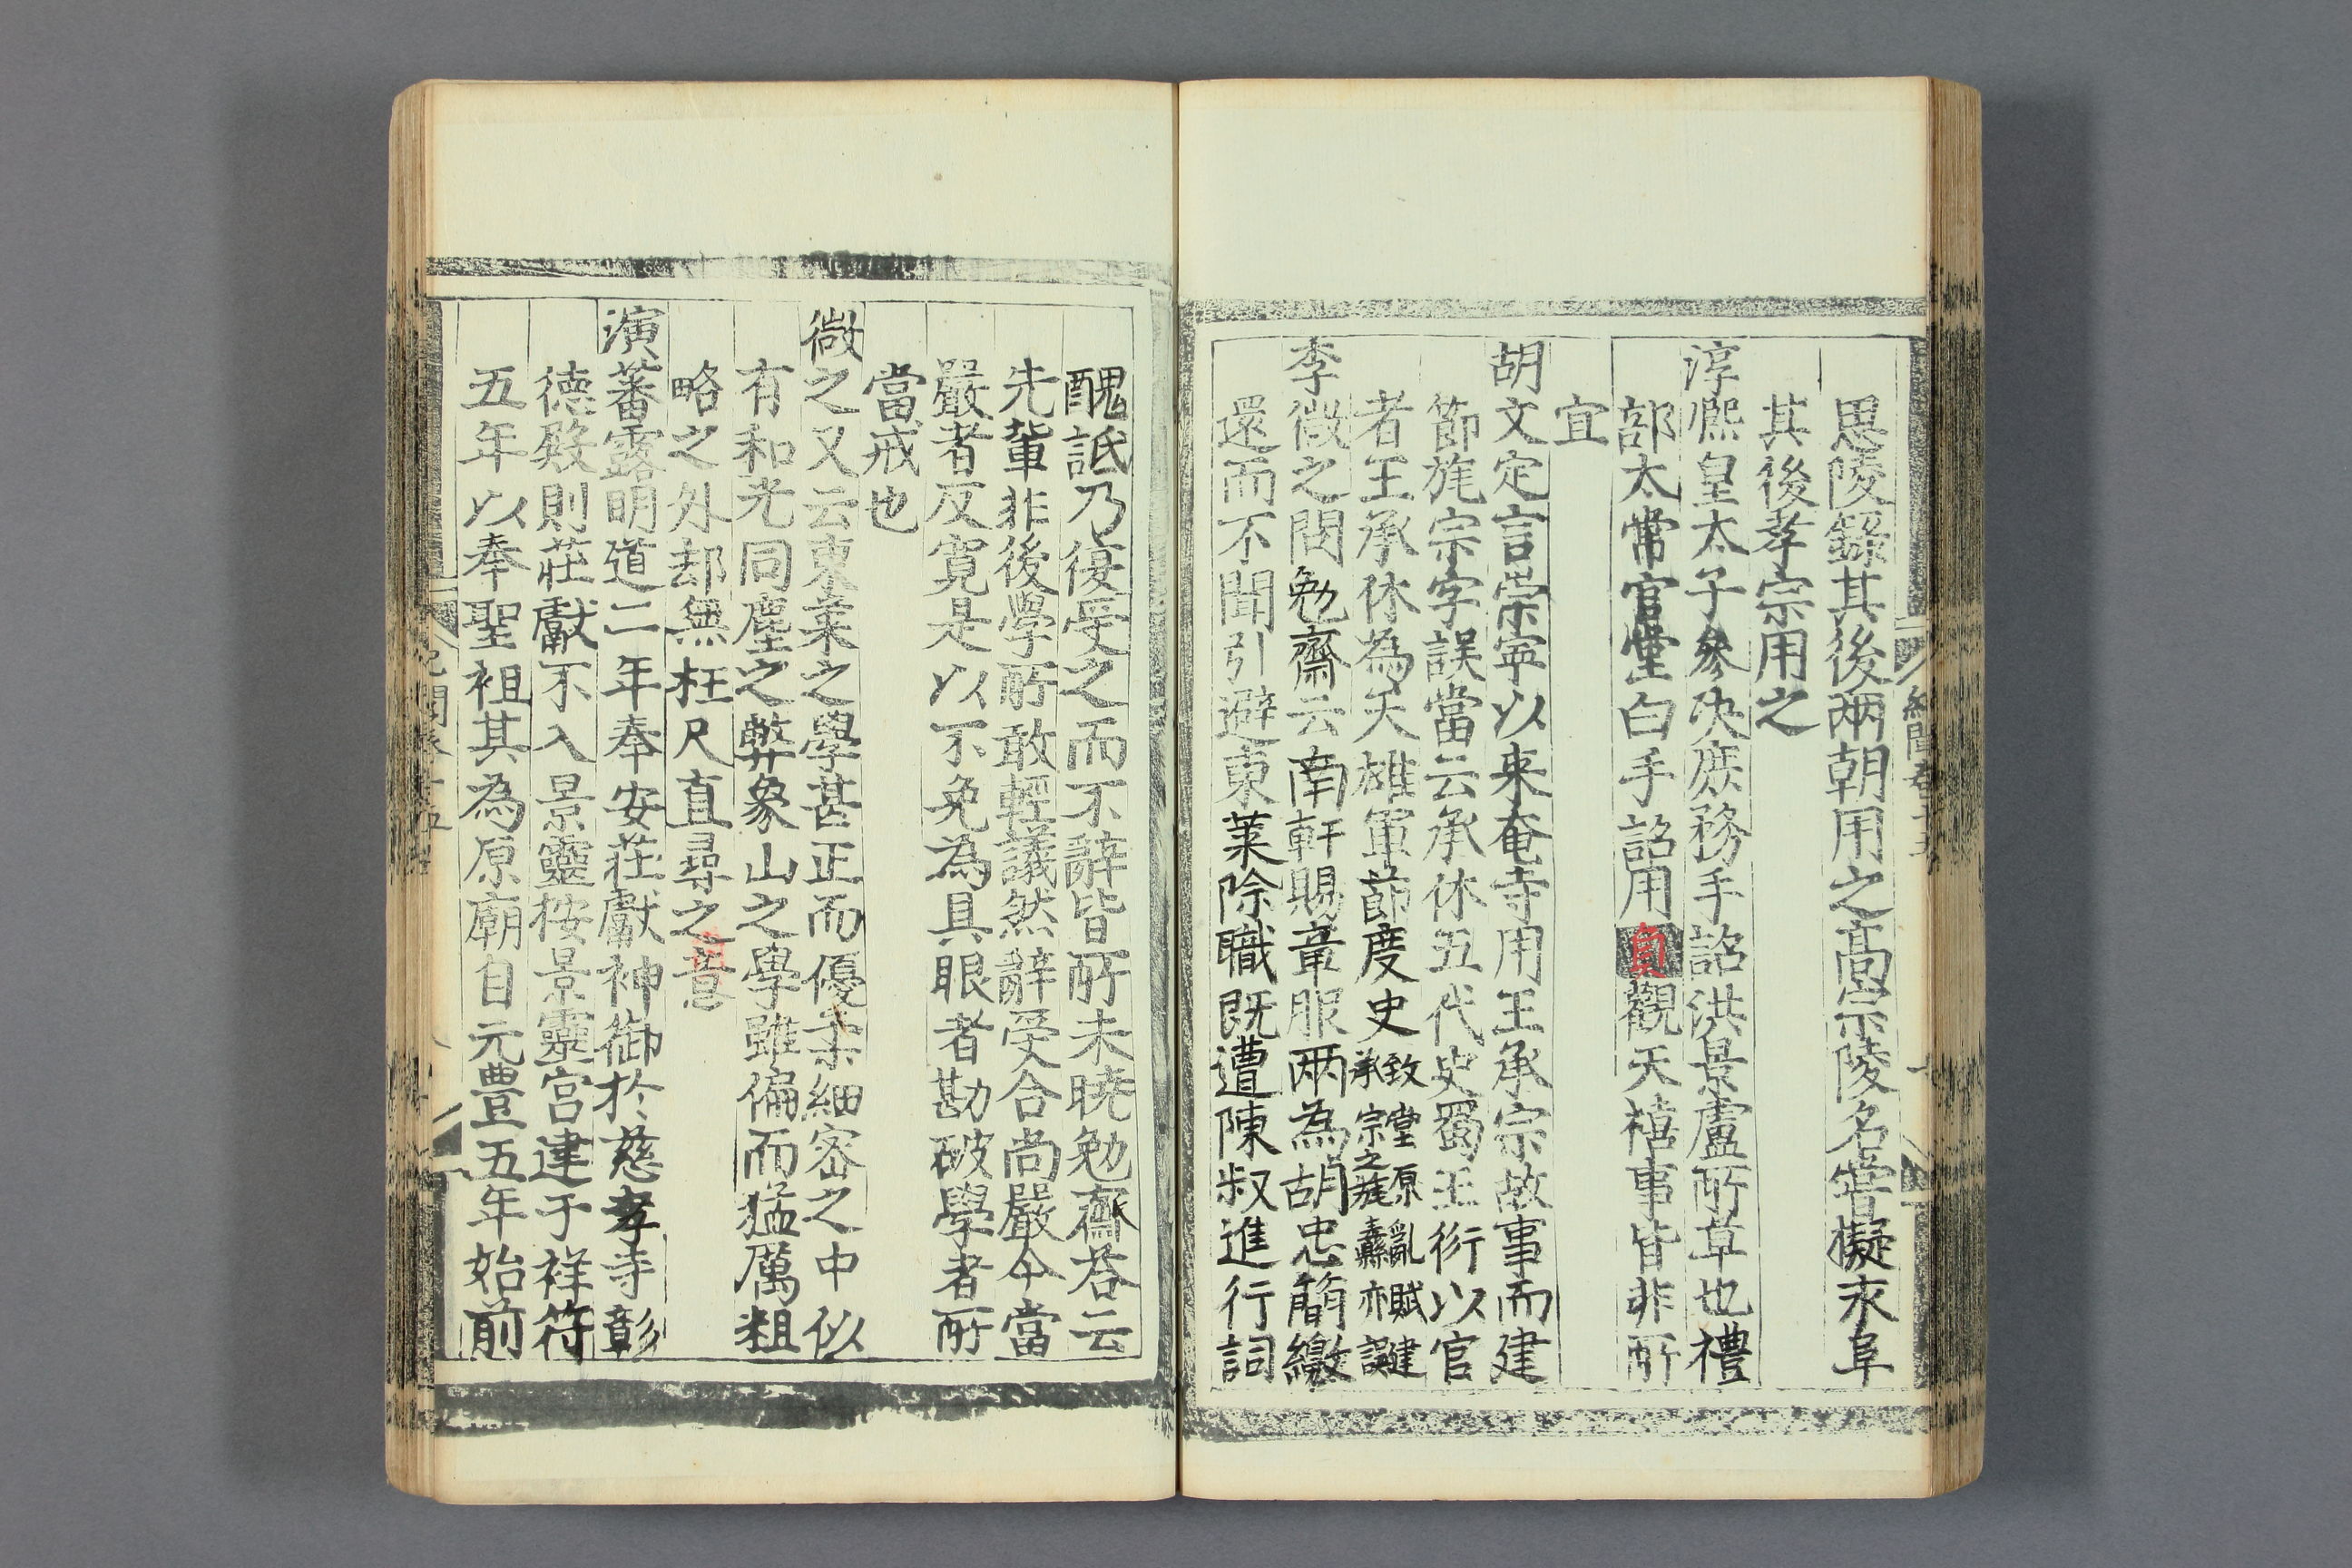 思陵錄其後兩朝用之高宗陵名嘗擬永阜
其後孝宗用之
淳熈皇太子叅决庻務手詔洪景盧所草也禮
部太常官堂白手詔用貟觀天禧事皆非所
宜
胡文定言崇寧以来奄寺用王承宗故事而建
節旄宗字誤當云承休五代史蜀王衍以官
者王承休為天雄軍節度史致堂原亂賦建承宗之旄纛亦誤
李微之問勉齋云南軒賜章服两為胡忠簡繳
還而不聞引避東萊除職既遭陳叔進行詞
醜詆乃復受之而不辭皆所未曉勉齋荅云
先軰非後學所敢輕議然辭受合尚嚴今當
嚴者反寛是以不免為具眼者勘破學者所
當戒也
微之又云東萊之學甚正而優柔細密之中似
有和光同塵之弊象山之學雖偏而猛厲粗
略之外却無枉尺直尋之意
演蕃露明道二年奉安莊獻神御於慈孝寺彰
德殿則莊獻不入景靈按景靈宫建于祥符
五年以奉聖祖其為原廟自元豊五年始前